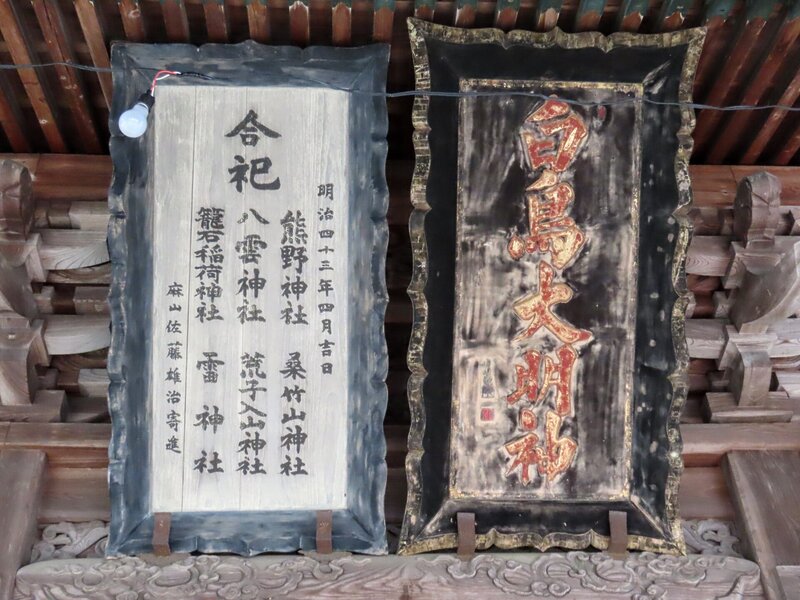 白鳥大明神
合祀
明治四十三年四月吉日
熊野神社 桑竹山神社
八雲神社 荒子入山神社
籠石稲荷神社 雷神社
麻山佐藤雄治寄進